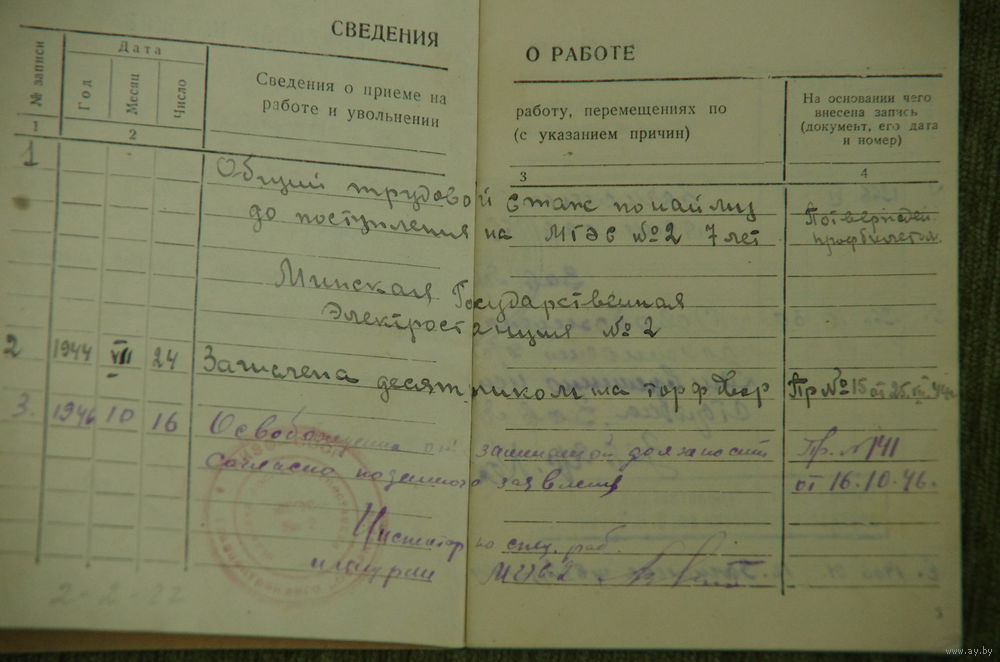 СВЕДЕНИЯ О РАБОТЕ
№ записи
Дата
Год
Месяц
Число
Сведения о приеме на работу, перемещениях по
работе и увольнении (с указанием причин)
На основании чего
внесена запись
(документ, его дата
и номер)
1 2 3 4
1 Общий трудовой стаж по найму
до поступления на МГЭС №2 7 лет
профбилетом
Минская Государственная
Электростанция №2
2 1944 VII 24 Зачислена десятником на торфдвор Пр №15 от 25
3. 1946 10 16 занимаемой должности Пр. №141
Согласно поданного заявления от 16.10.46.
по спец. раб.
2-2-22
3
www.ay.by